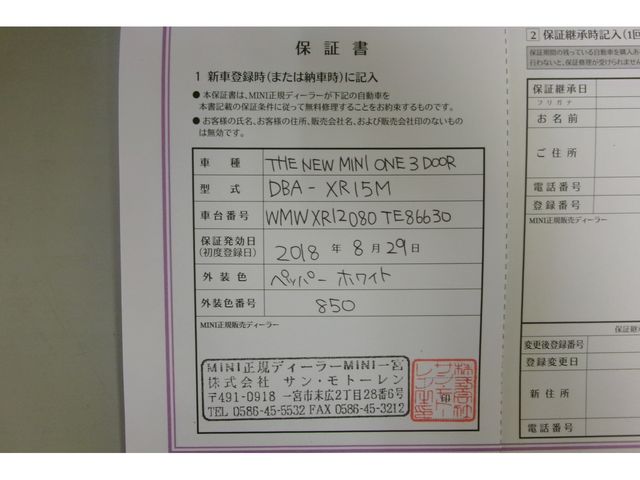 保証書
1 新車登録時(または納車時)に記入
● 本保証書は、MINI正規ディーラーが下記の自動車を
本書記載の保証条件に従って無料修理することをお約束するものです。
● お客様の氏名、お客様の住所、販売会社名、および販売会社印のないもの
は無効です。
車種 THE NEW MINI ONE 3 DOOR
型式 DBA-XR15M
車台番号 WMWXR12080TE86630
保証発効日
(初度登録日) 2018 年 8 月 29 日
外装色 ペッパー ホワイト
外装色番号 850
MINI正規販売ディーラー
MINI正規ディーラーMINI一宮
株式会社 サン・モトーレン
〒491-0918 一宮市末広2丁目28番6号
TEL 0586-45-5532 FAX 0586-45-3212
2 保証継承時記入(1回
保証期間の残っている自動車を購入あ
行わないと、保証修理が受けられませ
保証継承日
フリガナ
お名前
ご住所
電話番号
登録番号
MINI正規販売ディーラー
保証継
変更後登録番号
登録変更日
新住所
電話番号